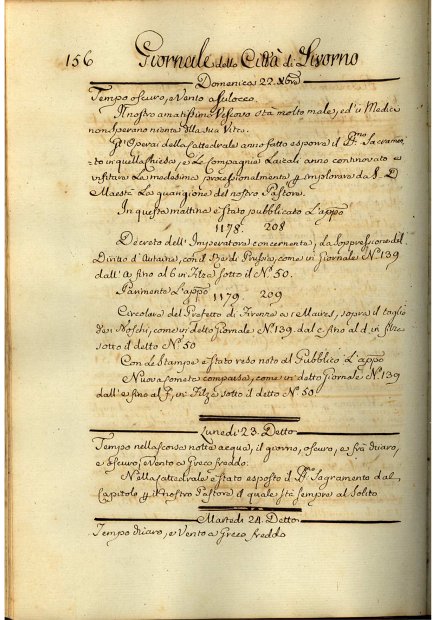 156 Giornale della Città di Livorno
Domenica 22. Xbre
Tempo oscuro, e Vento a Sulocco
Il nostro amatissimo Vescovo stà molto male, ed i Medici
non sperano niente della sua Vita.
Gl'Operai della Cattedrale anno fatto esporre il SS.mo Sacramen-
to in quella chiesa, e le Compagnie Laicali anno continovato a
visitare La medesima processionalmente p implorare da S. D.
Maestà La guarigione del nostro Pastore.
In questa mattina è stato pubblicato L'appo
1178. 208
Decreto dell'Imperatore concernente, la soppressione del
Diritto d'Aubaine, con il Re di Prussia, come in Giornale N.º 139
dall' al 6 in Filza sotto il N.º 50.
Parimente L'appo
1179. 209
Circolare del Prefetto di Firenze a Maires, sopra il taglio
de Boschi, come in detto Giornale N.º 139. dal c fino al d in filza
sotto il detto N.º 50
Con Le Stampe è stato reso noto al Pubblico L'appo
Nuova Cometa comparsa, come in detto Giornale N.º 139
dall' e fino al f, in Filza sotto il detto N.º 50
Lunedi 23. Detto
Tempo nella scorsa notte acqua, il giorno, oscuro, e frà chiaro,
e oscuro, e Vento a Greco freddo.
Nella Cattedrale è stato esposto il SS.mo Sagramento dal
Capitolo p il nostro Pastore il quale stà sempre al Solito
Martedi 24. Detto
Tempo chiaro, e Vento a Greco freddo